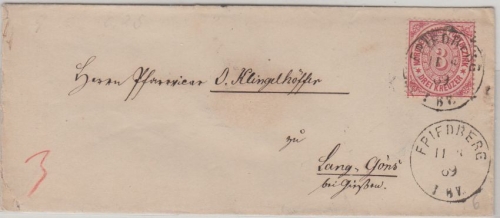 FRIEDBERG
69
1 BV.
3
DREI KREUZER
Herrn Pfarrvicar O. Klingelhöffer
zu
Lang-Göns
bei Gießen.
3
FRIEDBERG
11
69
1 BV.